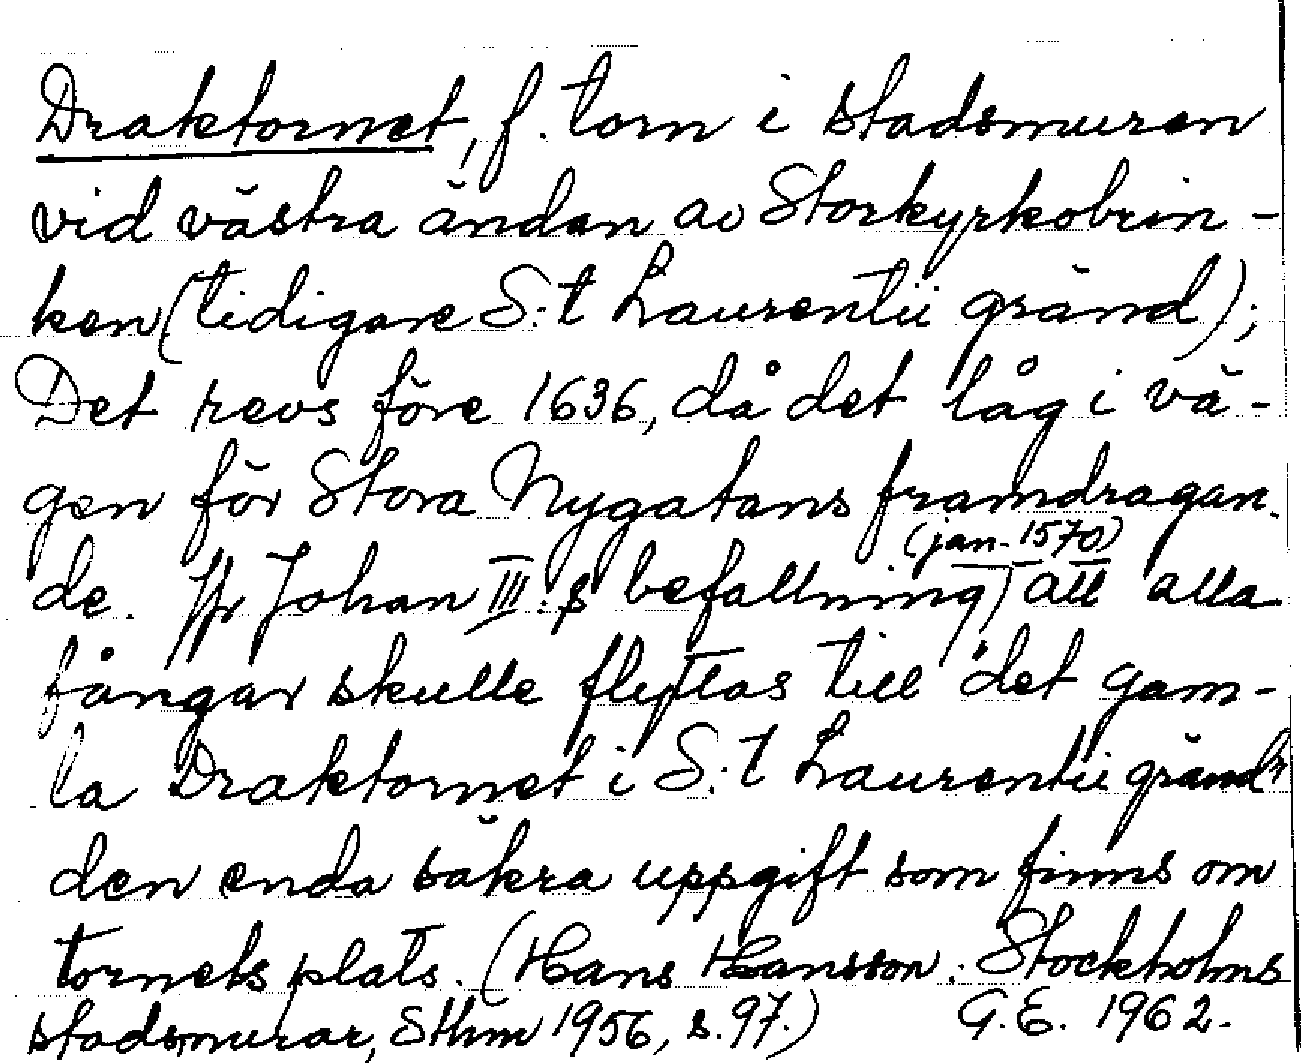 Draktornet, f. torn i stadsmuren
vid västra ändan av Storkyrkobrin-
ken (tidigare S:t Laurentii gränd);
Det revs före 1636, då det låg i vä-
gen för Stora Nygatans framdragan-
de. Jfr Johan III:s befallning (jan. 1570) att alla
fångar skulle flyttas till "det gam-
la Draktornet i S:t Laurentii gränd"
den enda säkra uppgift som finns om
tornets plats. (Hans Hansson: Stockholms
stadsmurar, Sthm 1956, s. 97.) G.E. 1962.